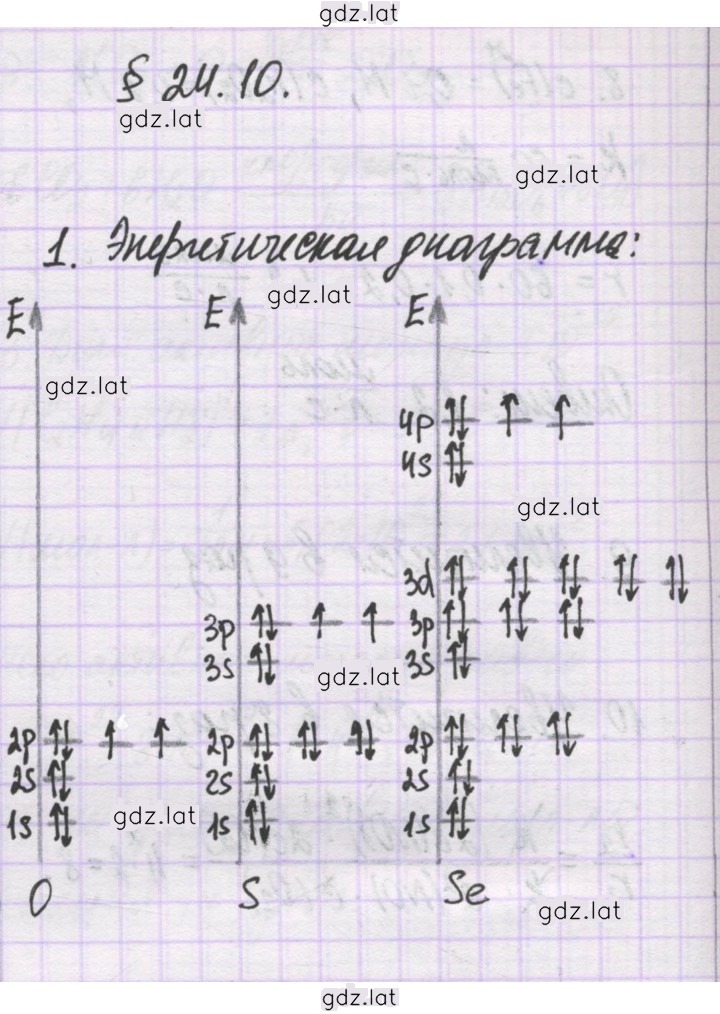 gdz.lat
§ 24.10.
gdz.lat
gdz.lat
1. Энергетическая диаграмма:
gdz.lat
E E E
gdz.lat
4p ↑↓ ↑ ↑
4s ↑↓
gdz.lat
3d ↑↓ ↑↓ ↑↓ ↑↓ ↑↓
3p ↑↓ ↑ ↑ 3p ↑↓ ↑↓ ↑↓
3s ↑↓ 3s ↑↓
gdz.lat
2p ↑↓ ↑ ↑ 2p ↑↓ ↑↓ ↑↓ 2p ↑↓ ↑↓ ↑↓
2s ↑↓ 2s ↑↓ 2s ↑↓
1s ↑↓ 1s ↑↓ 1s ↑↓
gdz.lat
O S Se
gdz.lat
gdz.lat